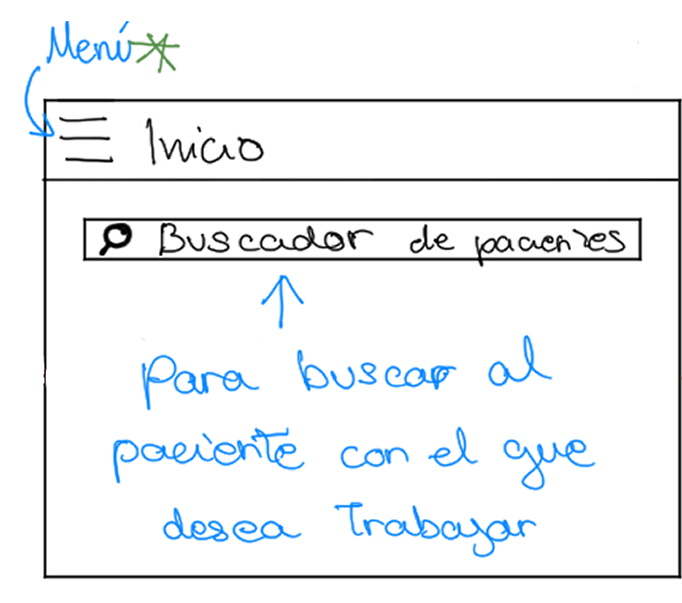 Menú*
Inicio
Buscador de pacientes
Para buscar al
paciente con el que
desea trabajar